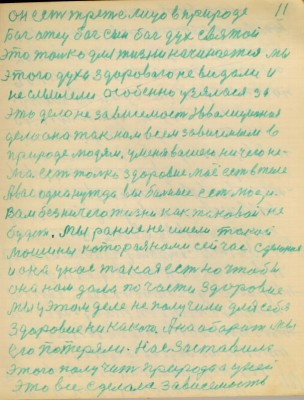 11
он есть третье лицо в природе
Бог отец бог сын бог дух святой
Это только для жизни начинается мы
этого духа здорового не видали и
не слышели особенно узялася за
это дело не зависемост Эволюцыоная
дело она так нам всем зависимым в
природе людям. у меня вашего ничего не-
ма есть только здоровие моё естественое
А вас одна нужда вы больные есть люди.
Вам без ничего жизни как таковой не
будет. Мы раньше не имели такой
машыны которая нами сейчас сделана
и она у нас такая есть но чтобы
она нам дала по части здоровие
мы у этом деле не получили для себя
здоровие никакого. А наоборот мы
его потеряли. Нас заставила
этого получить природа а у ней
Это все сделала зависемость